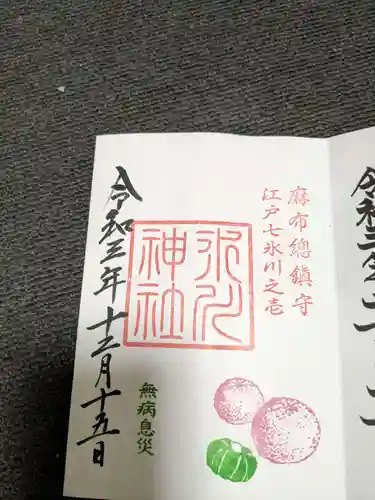 麻布總鎮守
江戸七氷川之壱
氷川
神社
令和三年十二月十五日
無病息災